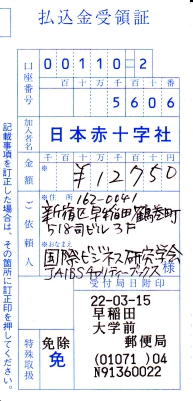 払込金受領証
口座番号
00110-2
百十万千百十番
5606
加入者名
日本赤十字社
金額
千百十万千百十円
※
¥12750
ご依頼人
※ご住所
162-0041
新宿区早稲田鶴巻町
518司ビル3F
※おなまえ
国際ビジネス研究学会
JAIBSチャリティーブックス
様
受付局日附印
特殊取扱
免除
免
22-03-15
早稲田
大学前
郵便局
(01071)04
N91360022
記載事項を訂正した場合は、その箇所に訂正印を押してください。